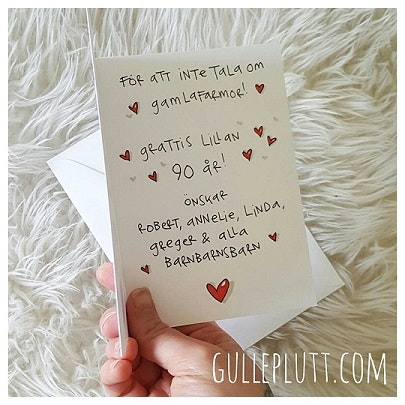 För att inte tala om
gamlafarmor!
grattis Lillan
90 år!
önskar
Robert, Annelie, Linda,
Greger & alla
barnbarnsbarn
GULLEPLUTT.COM